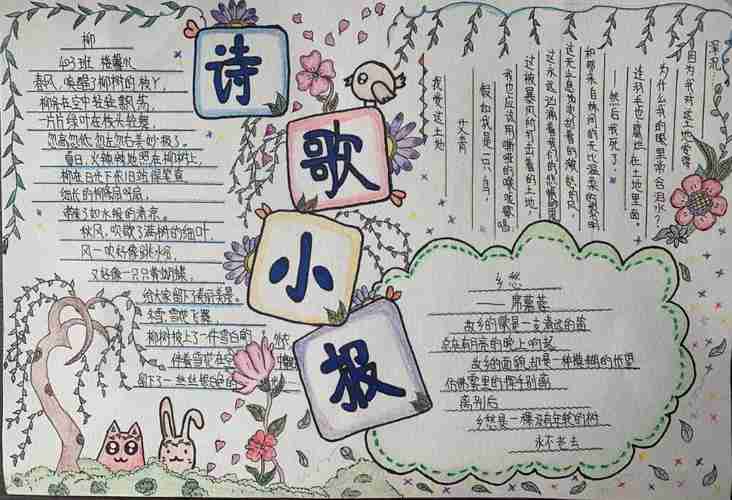 诗
歌
小
报
柳
403班
春风,唤醒了柳树的枝丫,
柳条在空中轻轻飘荡,
一片绿叶在枝头轻舞,
忽高忽低,忽左忽右美妙极了。
夏日,火辣辣地照在柳树上,
柳在日光下依旧
细长的柳
带着了如水般的清凉。
秋风,吹散了满树的细叶,
风一吹好像跳水
又好像一只只
给大家留下
冬雪,雪花飞舞
柳树披上了一件雪白的
伴着雪花在空
留下了一丝丝银色的
我爱这土地
艾青
假如我是一只鸟,
我也应该用嘶哑的喉咙歌唱
这被暴风雨所打击着的土地,
这永远汹涌着我们的悲愤的河
这无止息地吹刮着的激怒的风,
和那来自林间的无比温柔的黎明
——然后我死了,
连羽毛也腐烂在土地里面。
为什么我的眼里常含泪水?
因为我对这土地爱得
深沉……
乡愁
——席慕蓉
故乡的歌是一支清远的笛
总在有月亮的晚上响起
故乡的面貌却是一种模糊的怅望
仿佛雾里的挥手别离
离别后
乡愁是一棵没有年轮的树
永不老去